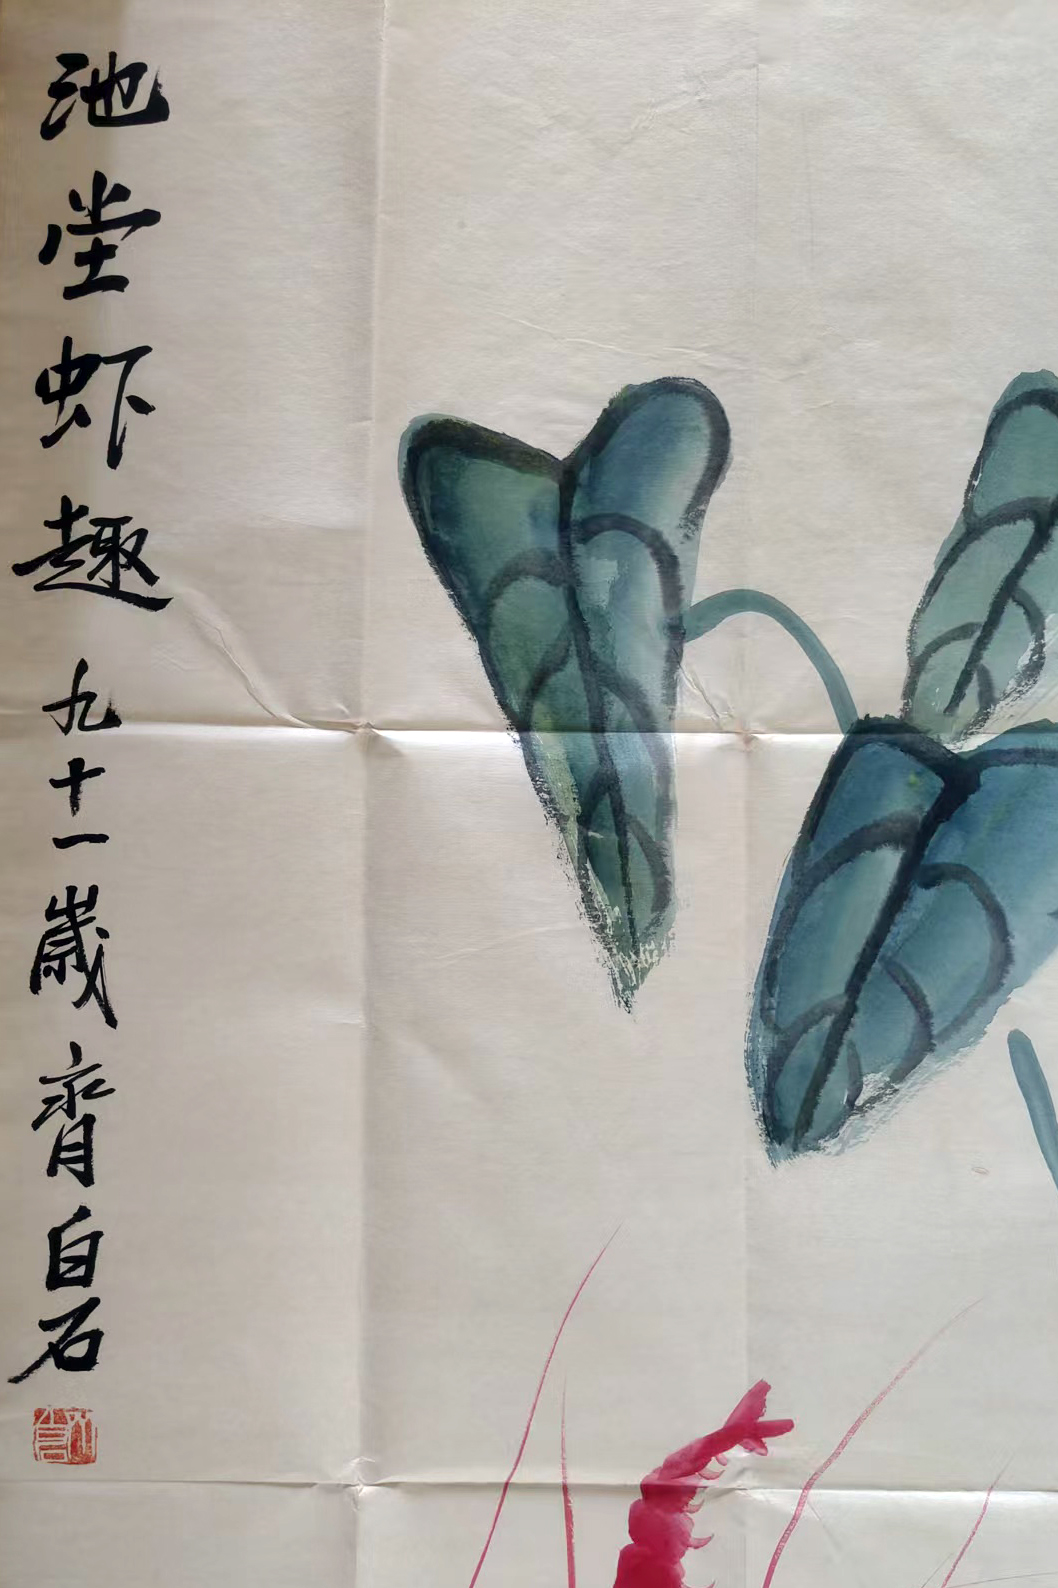 池堂虾趣 九十一歲 齊白石